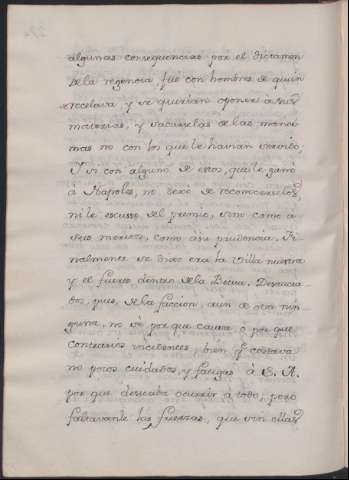 algunas consequencias por el dictamen
de la regencia, fue con hombres de quien
se recelava, y se querian oponer à sus
materias, y sacarselas de las manos
mas no con los que le havian servido,
Y si con alguno de esos, que le ganó
à Napoles, no dexò de reconocerselo,
ni le escusso del premio, sino como à
su, como à su prudencia. Fi
nalmente se dixo era la Villa nuestra
y el fuerte dentro de la Deuca. Desaucia-
dos, pues, de la faccion, aun de otro nin
guna, no se por que causa, ò por que
contrarios incidentes, bien q.e costava
no pocos cuidados, y fatigas à S. A.
por que deseaba ocurrir à todo, pero
faltavanle las fuerzas, que sin ellas